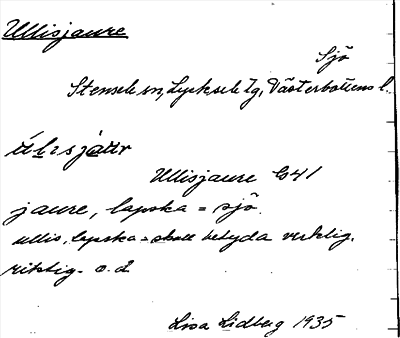 Ullisjaure
Sjö
Stensele sn, Lycksele lg, Västerbottens l.
Ullisjaure G41
jaure, lapska = sjö.
ullis, lapska = skall betyda verklig,
riktig. o.d
Lisa Lidberg 1935